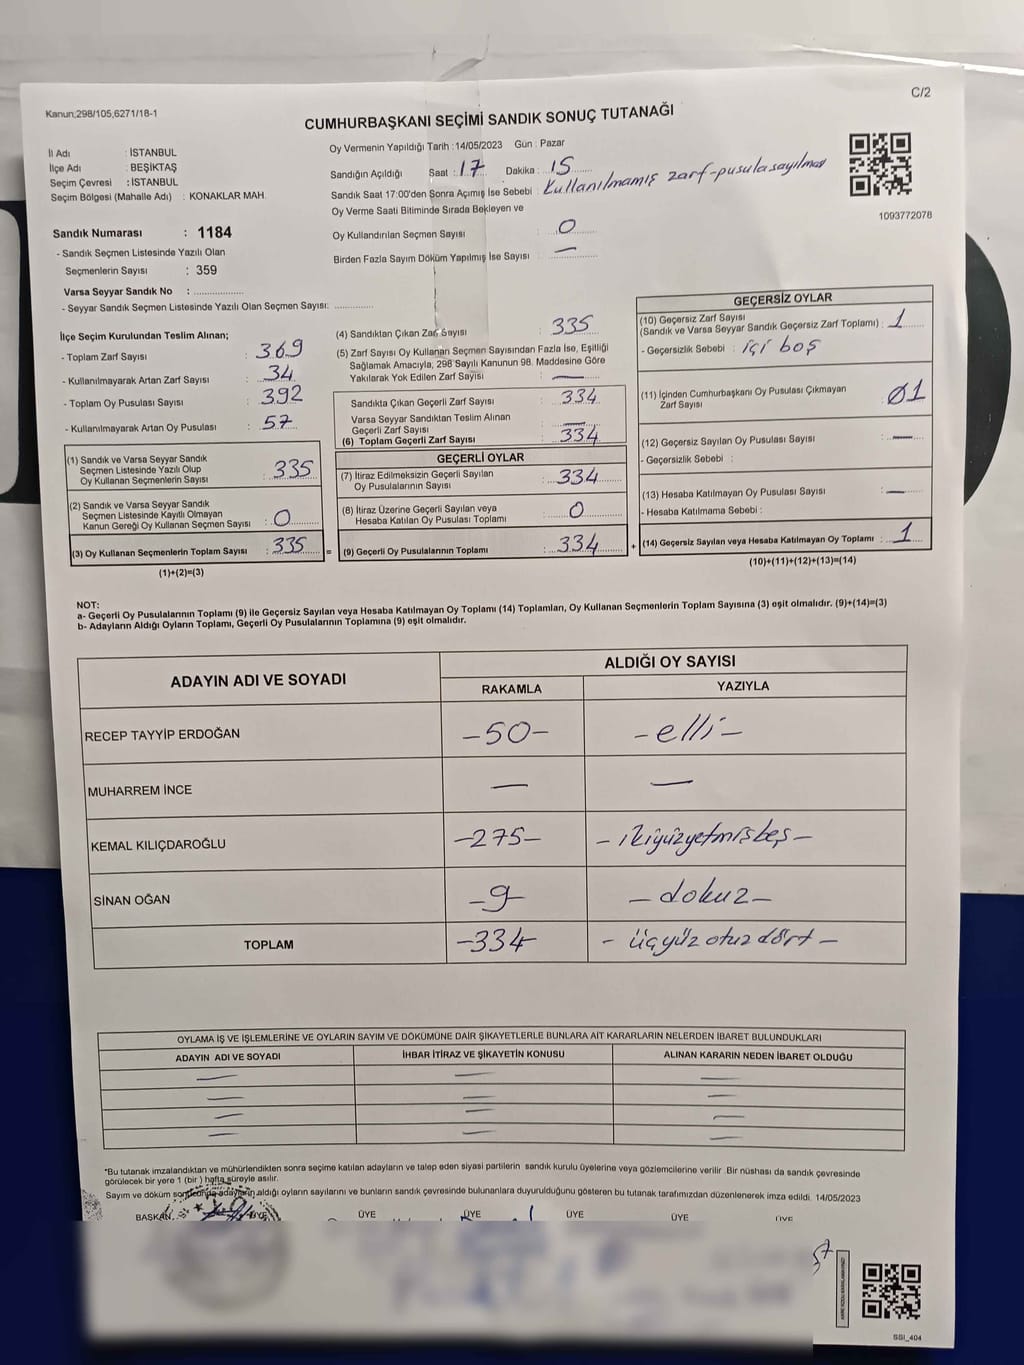 C/2
Kanun;298/105,6271/18-1
CUMHURBAŞKANI SEÇİMİ SANDIK SONUÇ TUTANAĞI
İl Adı : İSTANBUL
İlçe Adı : BEŞİKTAŞ
Seçim Çevresi : İSTANBUL
Seçim Bölgesi (Mahalle Adı) : KONAKLAR MAH.
Sandık Numarası : 1184
- Sandık Seçmen Listesinde Yazılı Olan
Seçmenlerin Sayısı : 359
Varsa Seyyar Sandık No : ..............
- Seyyar Sandık Seçmen Listesinde Yazılı Olan Seçmen Sayısı: ............
Oy Vermenin Yapıldığı Tarih : 14/05/2023 Gün : Pazar
Sandığın Açıldığı Saat : 17 Dakika : 15
Sandık Saat 17:00'den Sonra Açımış İse Sebebi : Kullanılmamış zarf-pusula sayılması
Oy Verme Saati Bitiminde Sırada Bekleyen ve
Oy Kullandırılan Seçmen Sayısı : 0
Birden Fazla Sayım Döküm Yapılmış İse Sayısı : —
1093772078
İlçe Seçim Kurulundan Teslim Alınan;
- Toplam Zarf Sayısı : 369
- Kullanılmayarak Artan Zarf Sayısı : 34
- Toplam Oy Pusulası Sayısı : 392
- Kullanılmayarak Artan Oy Pusulası : 57
(1) Sandık ve Varsa Seyyar Sandık
Seçmen Listesinde Yazılı Olup
Oy Kullanan Seçmenlerin Sayısı : 335
(2) Sandık ve Varsa Seyyar Sandık
Seçmen Listesinde Kayıtlı Olmayan
Kanun Gereği Oy Kullanan Seçmen Sayısı : 0
(3) Oy Kullanan Seçmenlerin Toplam Sayısı : 335
(1)+(2)=(3)
=
(4) Sandıktan Çıkan Zarf Sayısı : 335
(5) Zarf Sayısı Oy Kullanan Seçmen Sayısından Fazla İse, Eşitliği
Sağlamak Amacıyla, 298 Sayılı Kanunun 98. Maddesine Göre
Yakılarak Yok Edilen Zarf Sayısı : —
Sandıkta Çıkan Geçerli Zarf Sayısı : 334
Varsa Seyyar Sandıktan Teslim Alınan
Geçerli Zarf Sayısı : —
(6) Toplam Geçerli Zarf Sayısı : 334
GEÇERLİ OYLAR
(7) İtiraz Edilmeksizin Geçerli Sayılan
Oy Pusulalarının Sayısı : 334
(8) İtiraz Üzerine Geçerli Sayılan veya
Hesaba Katılan Oy Pusulası Toplamı : 0
(9) Geçerli Oy Pusulalarının Toplamı : 334
+
GEÇERSİZ OYLAR
(10) Geçersiz Zarf Sayısı
(Sandık ve Varsa Seyyar Sandık Geçersiz Zarf Toplamı) : 1
- Geçersizlik Sebebi : içi boş
(11) İçinden Cumhurbaşkanı Oy Pusulası Çıkmayan
Zarf Sayısı : 01
(12) Geçersiz Sayılan Oy Pusulası Sayısı : —
- Geçersizlik Sebebi :
(13) Hesaba Katılmayan Oy Pusulası Sayısı : —
- Hesaba Katılmama Sebebi :
(14) Geçersiz Sayılan veya Hesaba Katılmayan Oy Toplamı : 1
(10)+(11)+(12)+(13)=(14)
NOT:
a- Geçerli Oy Pusulalarının Toplamı (9) ile Geçersiz Sayılan veya Hesaba Katılmayan Oy Toplamı (14) Toplamları, Oy Kullanan Seçmenlerin Toplam Sayısına (3) eşit olmalıdır. (9)+(14)=(3)
b- Adayların Aldığı Oyların Toplamı, Geçerli Oy Pusulalarının Toplamına (9) eşit olmalıdır.
ADAYIN ADI VE SOYADI
ALDIĞI OY SAYISI
RAKAMLA YAZIYLA
RECEP TAYYİP ERDOĞAN -50- -elli-
MUHARREM İNCE — —
KEMAL KILIÇDAROĞLU -275- -ikiyüzyetmişbeş-
SİNAN OĞAN -9- -dokuz-
TOPLAM -334- -üçyüz otuz dört-
OYLAMA İŞ VE İŞLEMLERİNE VE OYLARIN SAYIM VE DÖKÜMÜNE DAİR ŞİKAYETLERLE BUNLARA AİT KARARLARIN NELERDEN İBARET BULUNDUKLARI
ADAYIN ADI VE SOYADI İHBAR İTİRAZ VE ŞİKAYETİN KONUSU ALINAN KARARIN NEDEN İBARET OLDUĞU
— — —
— — —
— — —
— — —
*Bu tutanak imzalandıktan ve mühürlendikten sonra seçime katılan adayların ve talep eden siyasi partilerin sandık kurulu üyelerine veya gözlemcilerine verilir. Bir nüshası da sandık çevresinde
görülecek bir yere 1 (bir) hafta süreyle asılır.
Sayım ve döküm sonucunda adayların aldığı oyların sayılarını ve bunların sandık çevresinde bulunanlara duyurulduğunu gösteren bu tutanak tarafımızdan düzenlenerek imza edildi. 14/05/2023
BAŞKAN ÜYE ÜYE ÜYE ÜYE ÜYE ÜYE
SSI_404